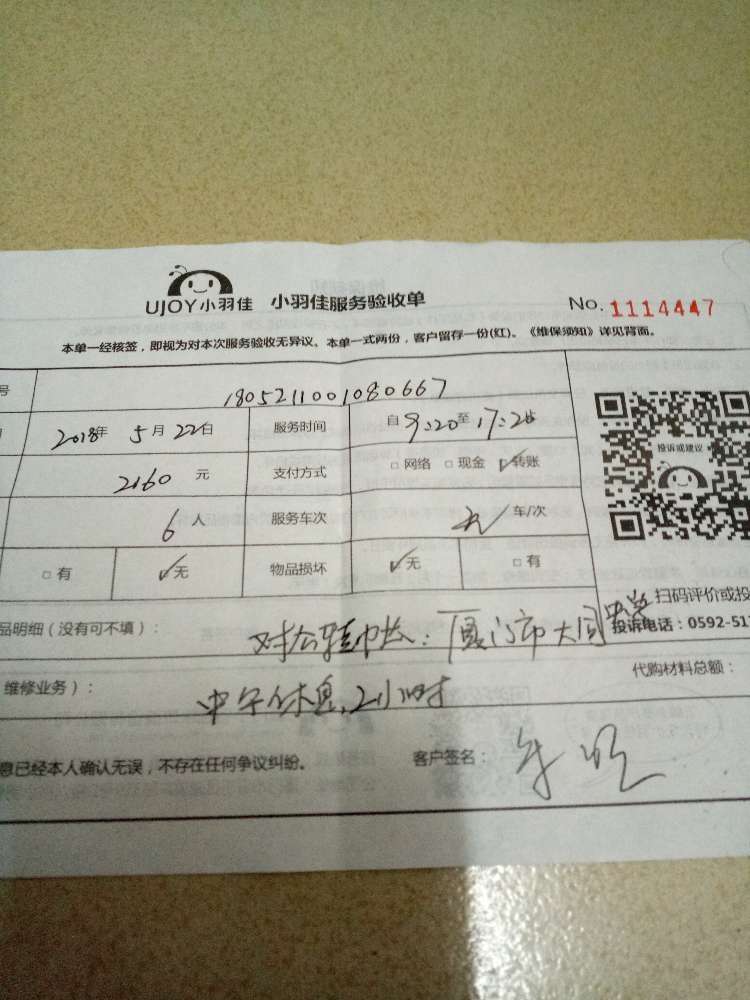 UJOY小羽佳 小羽佳服务验收单 No. 1114447
本单一经核签，即视为对本次服务验收无异议、本单一式两份，客户留存一份(红)。《维保须知》详见背面。
号 1805211001080667
2018年 5月 22日 服务时间 自 9:20 至 17:20
2160 元 支付方式 □ 网络 □ 现金 ☑ 转账
6 人 服务车次 车/次
□ 有 ☑ 无 物品损坏 ☑ 无 □ 有
投诉或建议
扫码评价或投
品明细（没有可不填）： 对公转帐：厦门市大同中学
投诉电话：0592-51
维修业务）： 中午休息2小时 代购材料总额：
息已经本人确认无误，不存在任何争议纠纷。 客户签名：